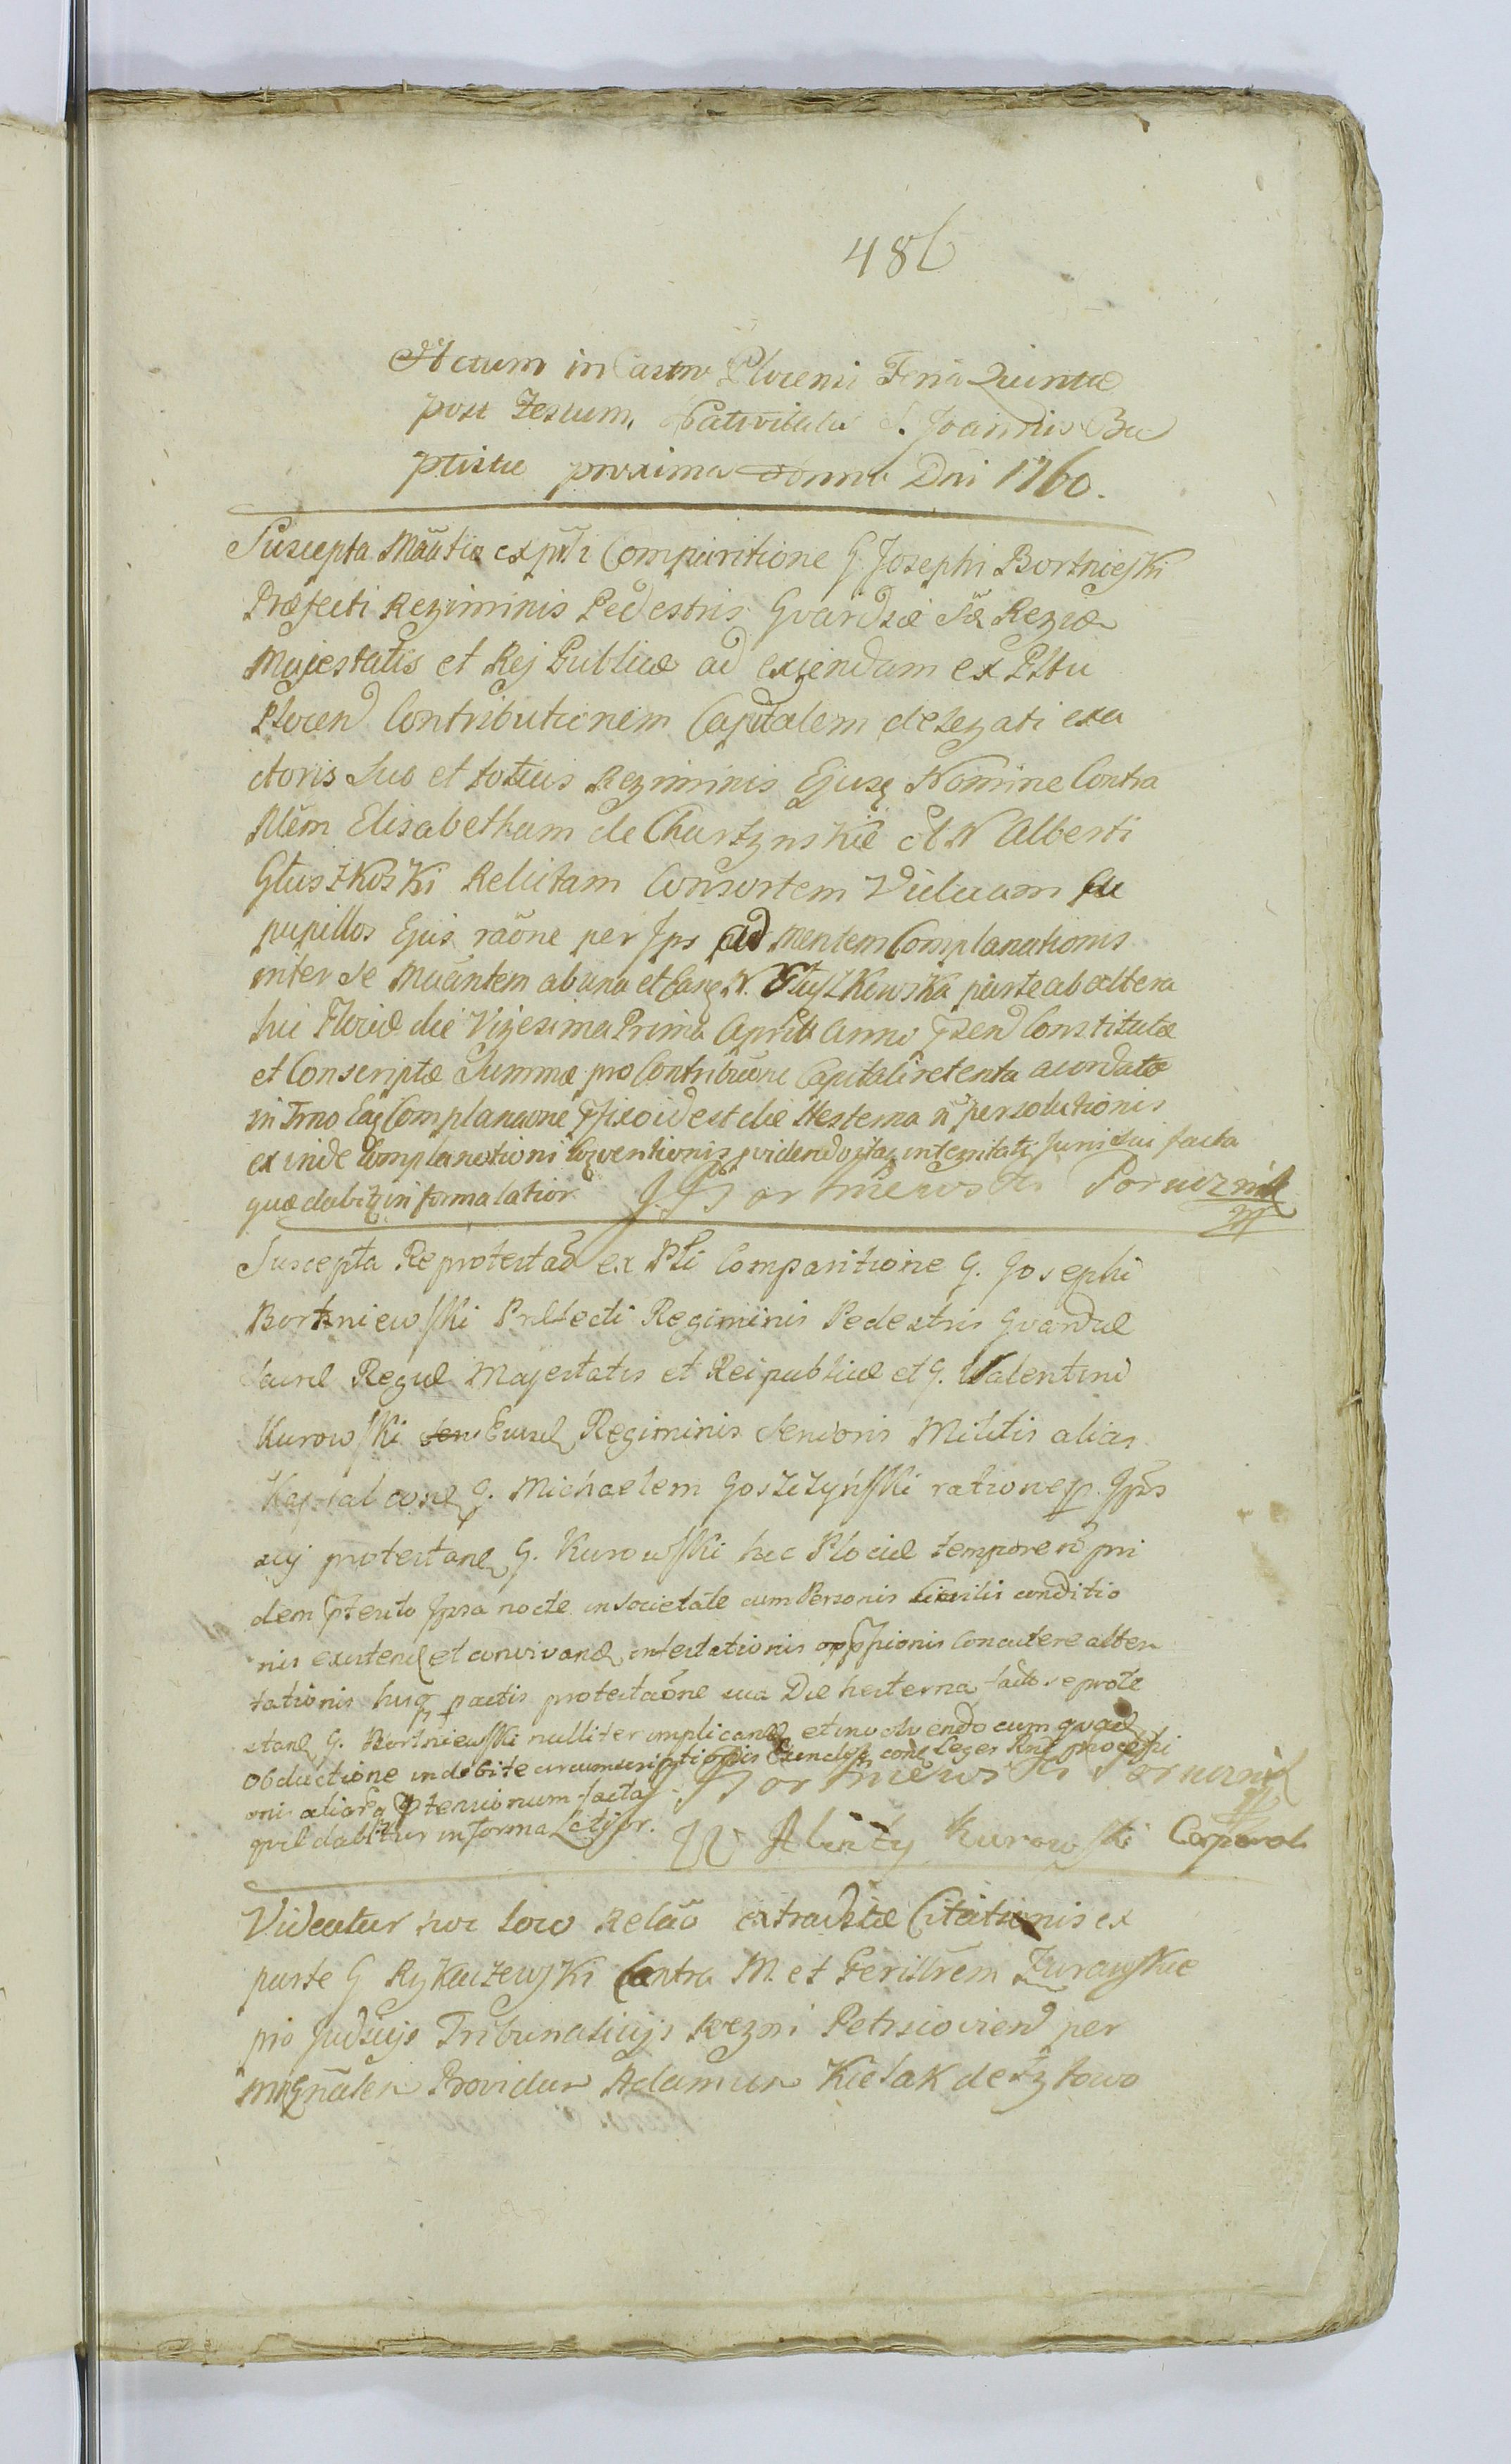 486
Actum in Castro Plocensi Feria Quinta
post Festum Nativitatis S. Joannis Ba
ptistae proxima Anno Dni 1760.
Suscepta Mãtia ex pñti Comparitione G. Josephi Bortnieski
Præfecti Regiminis Pedestris Gvardiæ Sæ Regiæ
Majestatis et Rej Publicæ ad exigendam ex Pltu
Plocen Contributionem Capitalem delegati exa
ctoris Suo et totius Regiminis Ejusq Nomine Contra
Elisabetham de Chartznskie olt N Alberti
Głuszkoski Relictam Consortem Viduam ac
pupillos Ejus raõne per Ips ad mentem Complanationis
inter se mãntem ab una et Eanq N. Głuszkowska parte ab altera
hic Plociæ die Vigesima Prima Aprilis Anno pñsen Constitutæ
et Conscriptæ Summæ pro Contribuõne Capitali retenta acordatæ
in Trno Eaq Complanaone pfixo id est die Hesterna ñ persolutionis
ex inde Complanationi Conventionis evidendo itaq integritati Juri sui facta
quæ dabitr in forma latior. J Bortniewski Porucznik
mp
Suscepta Reprotestao ex Pñti Comparitione G. Josephi
Bortkniewski Præfecti Regiminis Pedestris Gvardiæ
Sacræ Regiæ Majestatis et Reipublicæ et G. Walentini
Kurowski Eiusd Regiminis Senioris Militis alias
Kapral conq G. Michaelem Goszczyński ratione p. Ipõs
acij protestanq G. Kurowski hic Plociæ tempore ñ pri
dem pterito Ipsa nocte in Societate cum Personis Civilis conditio
nis existend et convivand infestationis oppsionis Concutere alter
tationis husq p actis protestaõne sua Die hesterna facto reprote
stanq G. Bortniewski nulliter implicand et involvendo cum quad
Obductione indebite circumscriptionis Eundq conq Leges Rni processi
oni aliarq ptensionum facta
quæ dabitur in forma Lątior. J Bortniewski Porucznik
W Alenty Kurowski Corporal
Videatur hoc loco Relão extraditæ Citationis ex
parte G Rykaczewski Contra M. et Gerislrem Zurawskie
pro Judicijs Tribunalicijs Regni Petricovien per
Mnlgnãlen Providum Adamum Kielak de